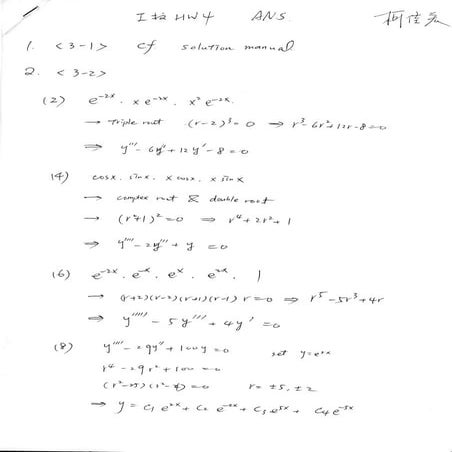 I 拉 HW4 ANS 柯佳宏
1. <3-1> cf solution manual
2. <3-2>
(2) e^-2x. x e^-2x. x² e^-2x.
→ Triple root (r-2)³=0 ⇒ r³-6r²+12r-8=0
⇒ y'''-6y''+12y'-8=0
(4) cosx. sinx. x cosx. x sinx
→ complex root & double root
→ (r²+1)²=0 ⇒ r⁴+2r²+1
⇒ y''''-2y''+y=0
(6) e^-2x. e^-x. e^x. e^2x. 1
→ (r+2)(r-2)(r+1)(r-1) r=0 ⇒ r⁵-5r³+4r
⇒ y'''''-5y'''+4y'=0
(8) y''''-29y''+100y=0 set y=e^rx
r⁴-29r²+100=0
(r²-25)(r²-4)=0 r=±5,±2
⇒ y=C₁e^2x+C₂e^-2x+C₃e^5x+C₄e^-5x